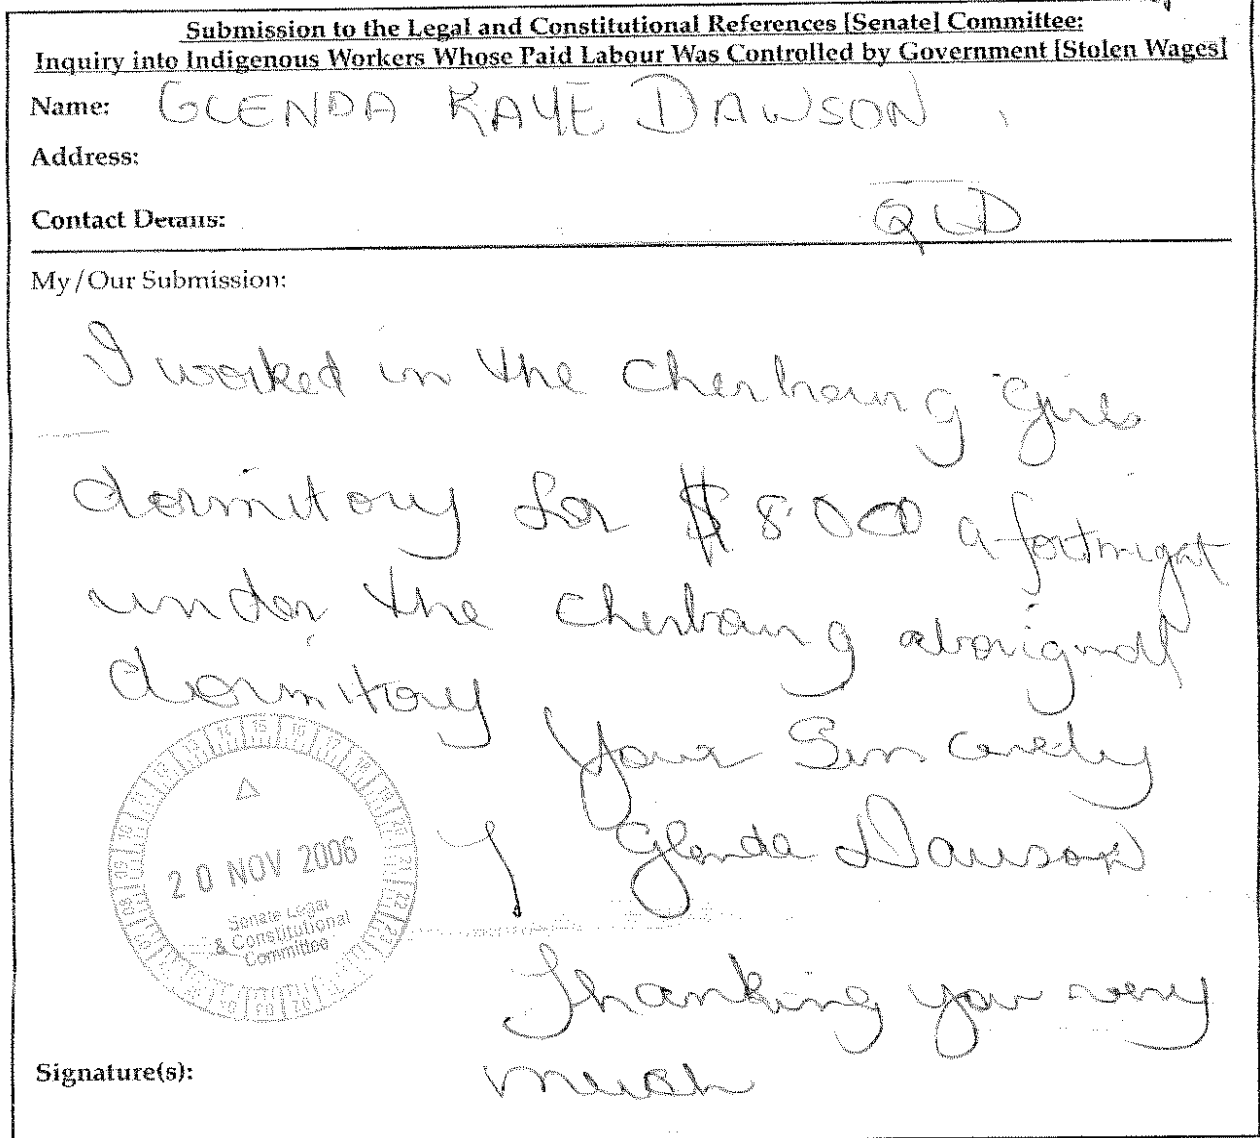 Submission to the Legal and Constitutional References [Senate] Committee:
Inquiry into Indigenous Workers Whose Paid Labour Was Controlled by Government [Stolen Wages]
Name: GLENDA KAYE DAWSON
Address:
Contact Details: QLD
My/Our Submission:
I worked in the Cherbourg Girls
dormitory for $8.00 a fortnigat
under the cherboung aboriginal
dormitory
Your Sincerely
Glenda Dawson
20 NOV 2006
Senate Legal
& Constitutional
Committee
Thanking you very
Signature(s): much